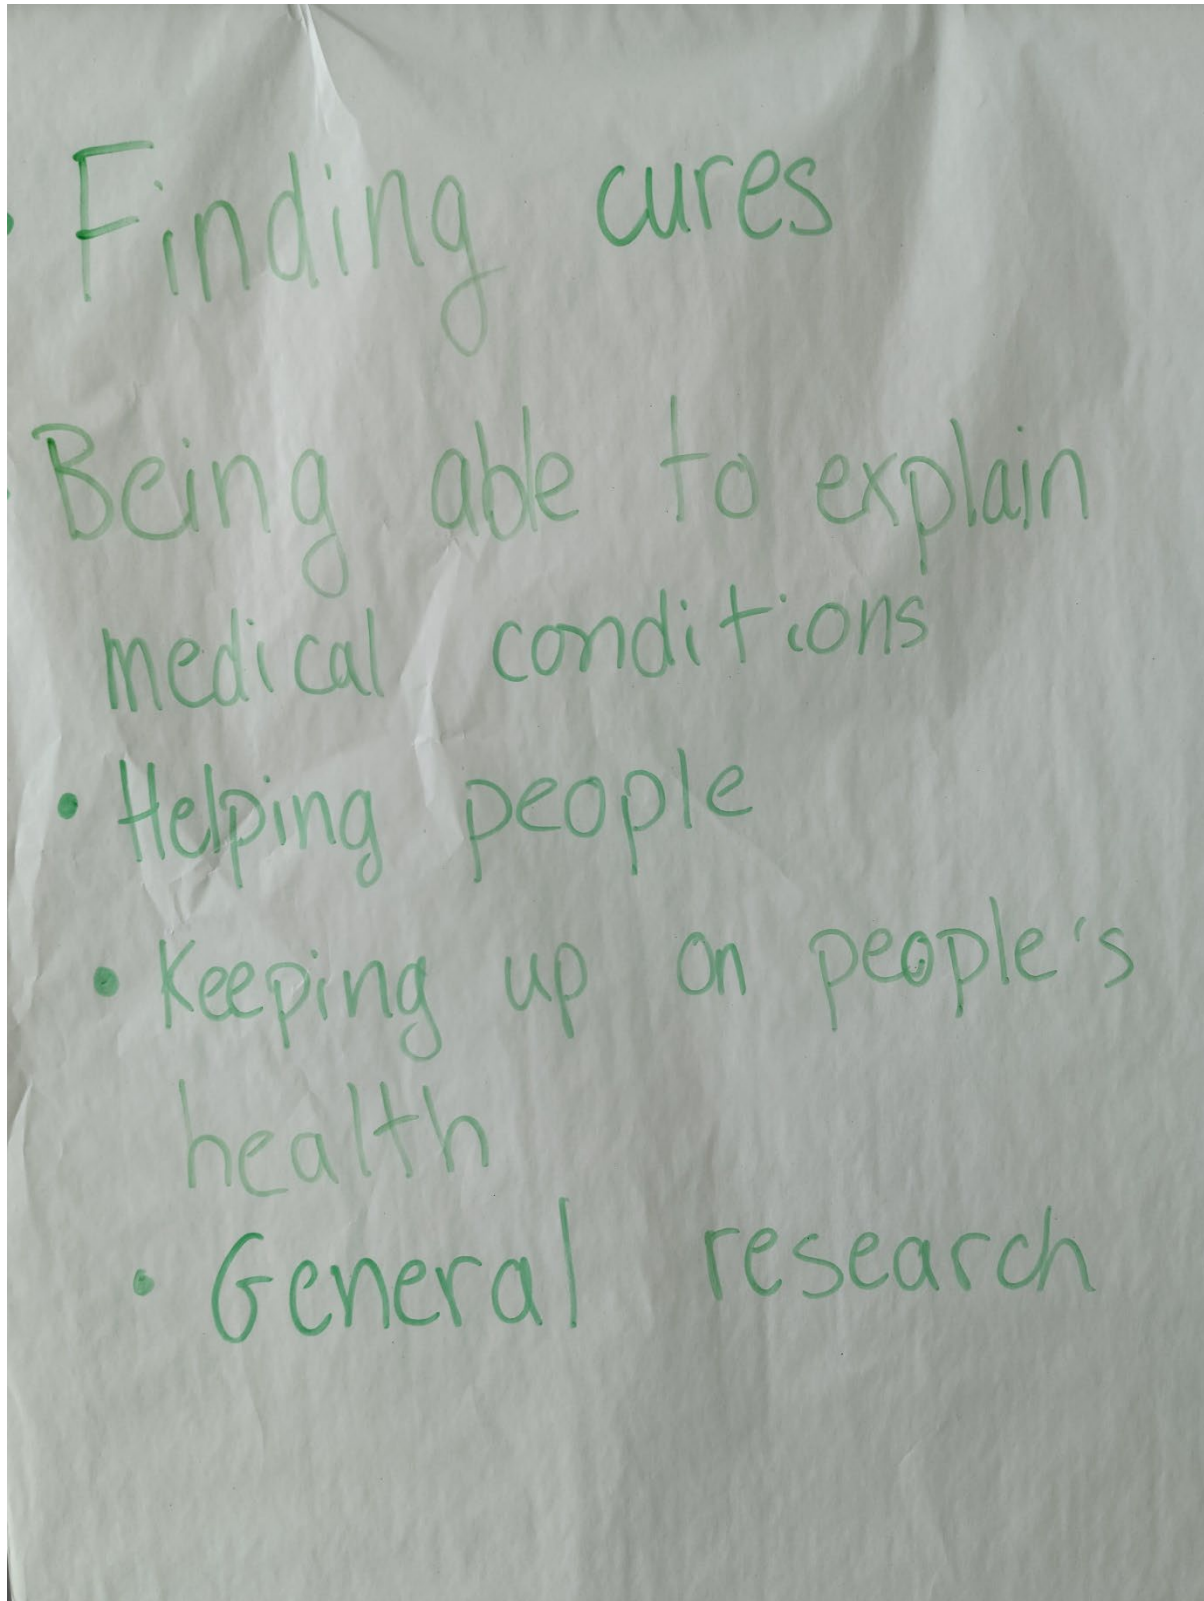 • Finding cures
• Being able to explain
medical conditions
• Helping people
• Keeping up on people's
health
• General research